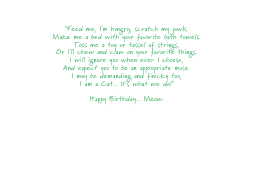 "Feed me, I'm hungry, scratch my jowls.
Make me a bed with your favorite bath towels.
Toss me a toy or tassel of strings,
Or I'll chew and claw on your favorite things.
I will ignore you when ever I choose,
And expect you to be an appropriate muse.
I may be demanding and finicky too,
I am a Cat... It's what we do!"
Happy Birthday... Meow